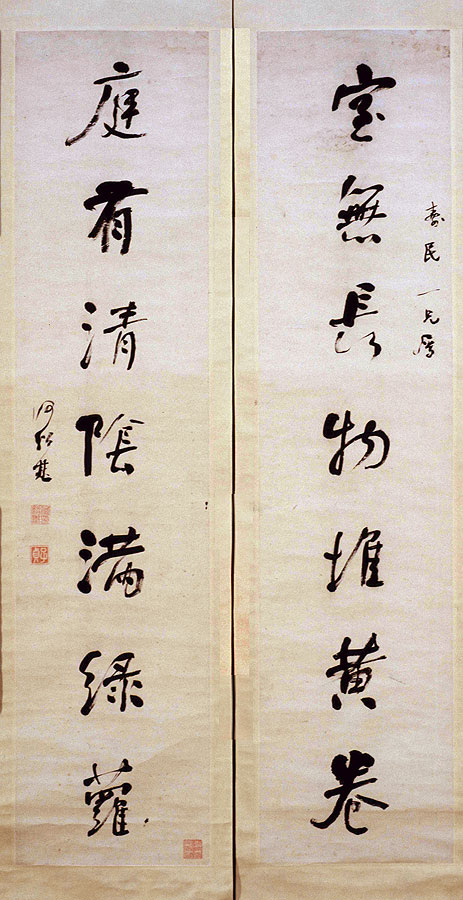 壽民一兄屬
室無長物堆黃卷
庭有清陰滿綠蘿
何紹基